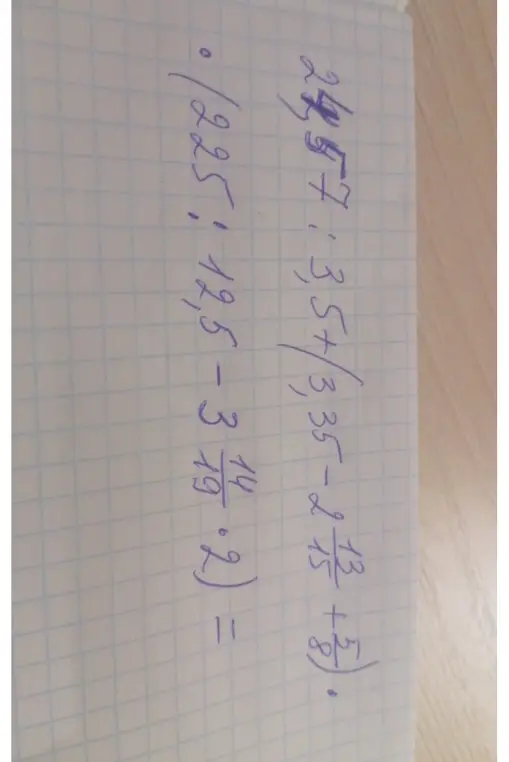 24,57 : 3,5 + (3,35 - 2 13/15 + 5/8) ·
· (225 : 12,5 - 3 14/19 · 2) =